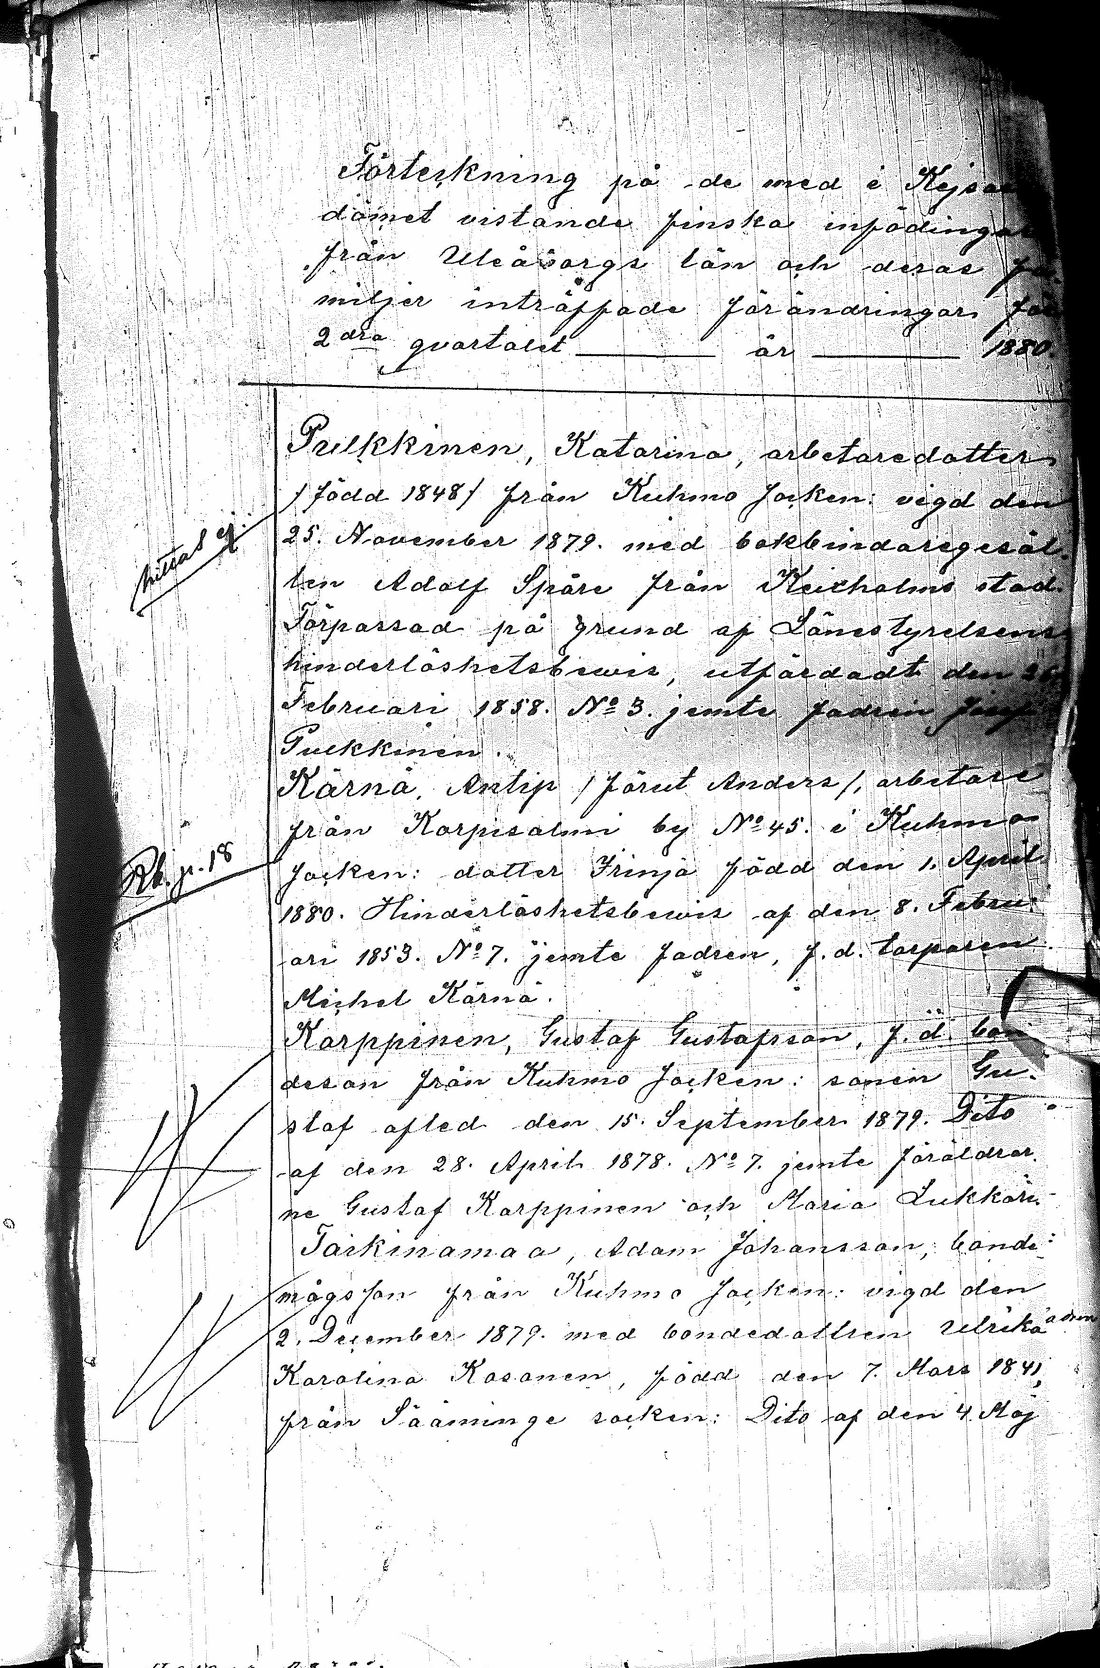 Förteckning på de med i Kejsar
dömet vistande finska infödingar
från Uleåborgs län och deras fa
miljer inträffade förändringar för
2dra qvartalet ——— år ——— 1880.
Pulkkinen, Katarina, arbetaredotter
/född 1848/ från Kuhmo socken: vigd den
25. November 1879. med bokbindaregesäl-
len Adolf Spåre från Kexholms stad.
Förpassad på grund af Länestyrelsens
hinderlöshetsbewis, utfärdadt den 26
Februari 1858. No 3. jemte fadren
Pulkkinen.
hittas ej.
Kärnä, Antip /förut Anders/, arbetare
från Korpisalmi by No 45. i Kuhmo
socken: dotter Irinja född den 1. April
1880. Hinderlöshetsbewis af den 8. Febru-
ari 1853. No 7. jemte fadren, f.d. torparen
Michel Kärnä.
Rb. p. 18
Karppinen, Gustaf Gustafsson, f.d. bon
deson från Kuhmo socken: sonen Gu-
staf afled den 15. September 1879. Dito
af den 28. April 1878. No 7. jemte föräldrar-
ne Gustaf Karppinen och Maria Lukkari.
Tarkinamaa, Adam Johansson, bonde-
mågsson från Kuhmo socken: vigd den
2. December 1879. med bondedottren Ulrika
Karolina Kosonen, född den 7. Mars 1841,
från Sääminge socken: Dito af den 4 Maj